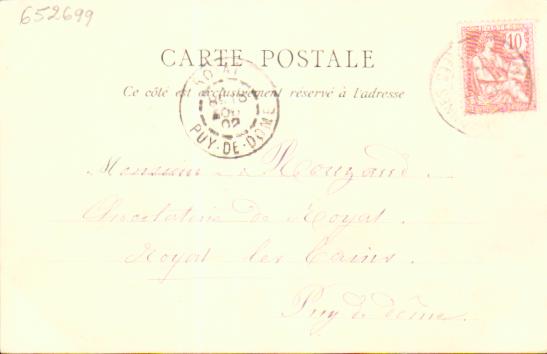 652699
10
CARTE POSTALE
Ce côté est exclusivement réservé à l'adresse
ROYAT
02
PUY-DE-DOME
Monsieur Rouzaud.
Chocolaterie de Royat.
Royat les Bains.
Puy de dôme.